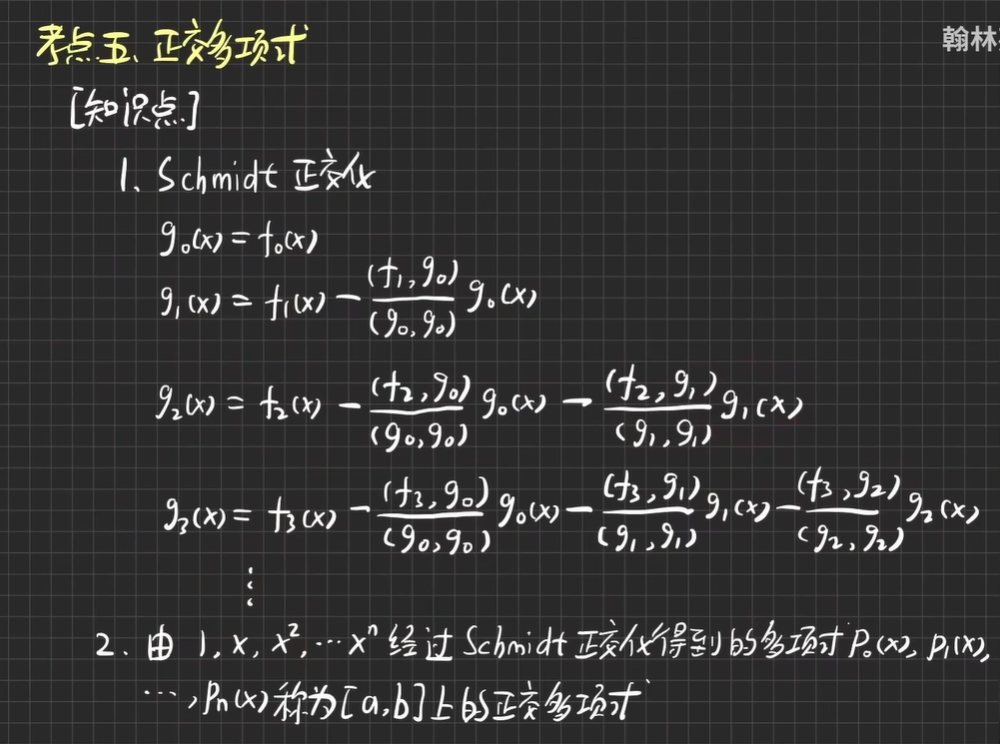 考点五、正交多项式
翰林
[知识点]
1、Schmidt 正交化
g₀(x) = f₀(x)
g₁(x) = f₁(x) - (f₁, g₀)/(g₀, g₀) g₀(x)
g₂(x) = f₂(x) - (f₂, g₀)/(g₀, g₀) g₀(x) - (f₂, g₁)/(g₁, g₁) g₁(x)
g₃(x) = f₃(x) - (f₃, g₀)/(g₀, g₀) g₀(x) - (f₃, g₁)/(g₁, g₁) g₁(x) - (f₃, g₂)/(g₂, g₂) g₂(x)
⋮
2、由 1, x, x², … xⁿ 经过 Schmidt 正交化得到的多项式 P₀(x), P₁(x),
…, Pn(x) 称为 [a, b] 上的正交多项式